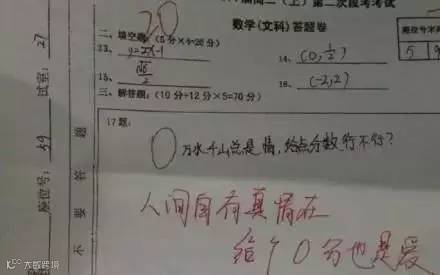 届高二(上)第二次段考考试
数学(文科)答题卷
20
二、填空题:(5分×4=20分)
13、y=2x-1
14、(0,½)
15、
16、(-2,2)
三、解答题:(10分+12分×5=70分)
17题:
0 万水千山总是情,给点分数行不行?
人间自有真情在
给个0分也是爱
座位号:49
试室:27
不要答题
大都跨境